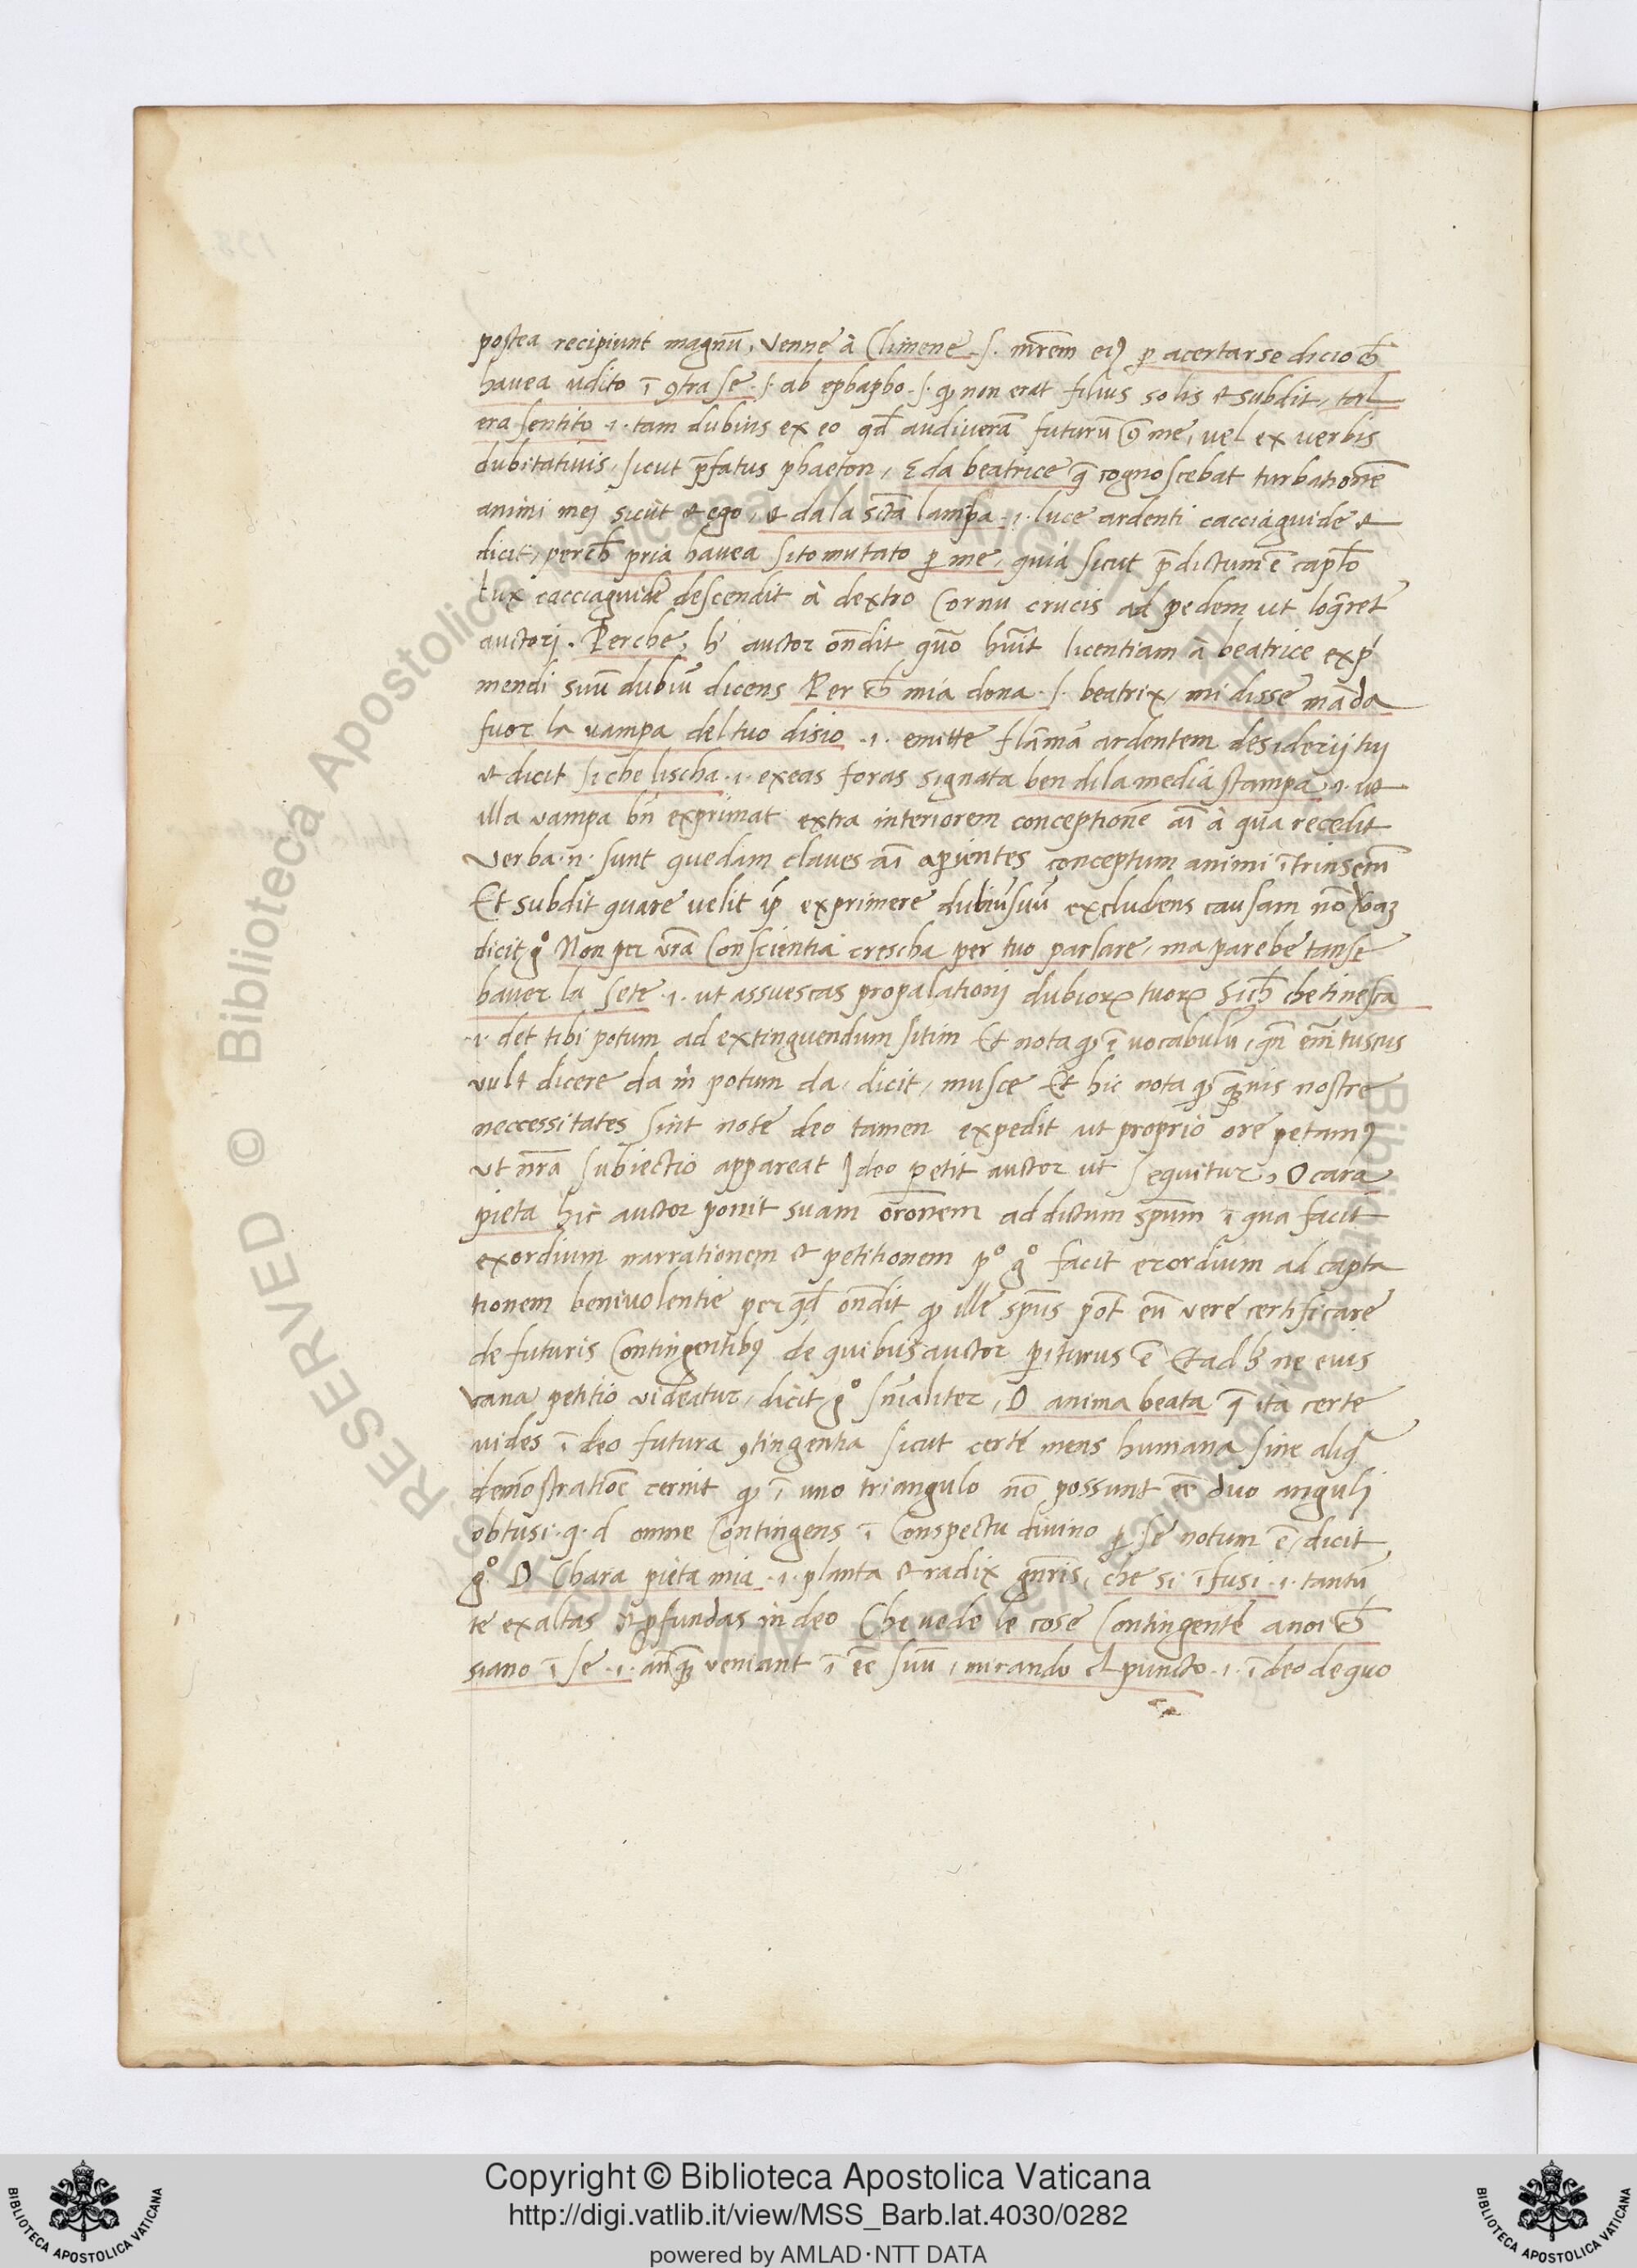 postea recipiunt magnū, venne à Climene .s. mr̄em eiꝰ ꝑ acertarse dicio ch̄
havea udito ī ꝯtra se .s. ab ephapho .s. ꝙ non erat filius solis et subdit, tal
era sentito .i. tam dubius ex eo qd̄ audiveră futurū ꝯ me, vel ex verbis
dubitativis, sicut p̄fatus phaeton, E da beatrice q̄ cognoscebat turbationē
animi mej sicut et ego, et da la scta lampa .i. luce ardenti cacciaguide et
dicit, perch̄ pria havea sito mutato ꝑ me, quia sicut p̄dictum ē capl̄o
lux cacciaguide descendit à dextro Cornu crucis ad pedem ut loq̄ret
auctorj. Perche, h' auctor on̄dit quō huīt licentiam à beatrice exp'
mendi suū dubiū dicens Per ch̄ mia dona .s. beatrix, mi disse māda
fuor la vampa del tuo disio .i. emitte flāmā ardentem desiderij tuj
et dicit si che lischa .i. exeas foras signata ben di la media stampa .i. ut
illa vampa bn̄ exprimat extra interiorem conceptionē ai à qua recedit
Verba .n. sunt quedam claves ai aperientes conceptum animi ītrinsecū
Et subdit quare velit ip̄ exprimere dubiū suū excludens causam nō
dicit gͦ Non per vrā Conscientia crescha per tuo parlare, ma parebe tanse
haver la sete .i. ut assuescas propalationj dubioꝝ tuoꝝ Sich̄ che ti nesca
.i. det tibi potum ad extinguendum sitim Et nota ꝙ ē vocabulū, qn̄ em̄ tuscus
vult dicere da m̄ potum da, dicit, musce Et hic nota ꝙ quis nostre
necessitates sint note deo tamen expedit ut proprio ore petamꝰ
ut nrā subiectio appareat Ideo petit auctor ut sequitur, O cara
pieta hic auctor ponit suam or̄onem ad dictum spum ī qua facit
exordium narrationem et petitionem pͦ gͦ facit exordium ad capta
tionem benivolentie per qd̄ on̄dit ꝙ ille spūs pōt eū vere certificare
de futuris Contingentibꝰ de quibus auctor petiturus ē Et ad h' ne eius
vana petitio videatur, dicit gͦ sn̄ialiter, O anima beata q̄ ita certe
vides ī deo futura ꝯtingentia sicut certe mens humana sine aliq̄
demōstratiōe cernit ꝙ ī uno triangulo nō possunt eē duo angulj
obtusi .q. d omne Contingens ī Conspectu divino ꝑ se notum ē, dicit
gͦ O Chara pieta mia .i. planta et radix gn̄ris, che si īfusi .i. tantū
te exaltas et ꝓfundas in deo Che vede le cose Contingente anoi ch̄
siano ī se .i. anq̄ veniant ī eē suū, mirando el puncto .i. ī deo de quo
Copyright © Biblioteca Apostolica Vaticana
http://digi.vatlib.it/view/MSS_Barb.lat.4030/0282
powered by AMLAD·NTT DATA
BIBLIOTECA APOSTOLICA VATICANA
BIBLIOTECA APOSTOLICA VATICANA